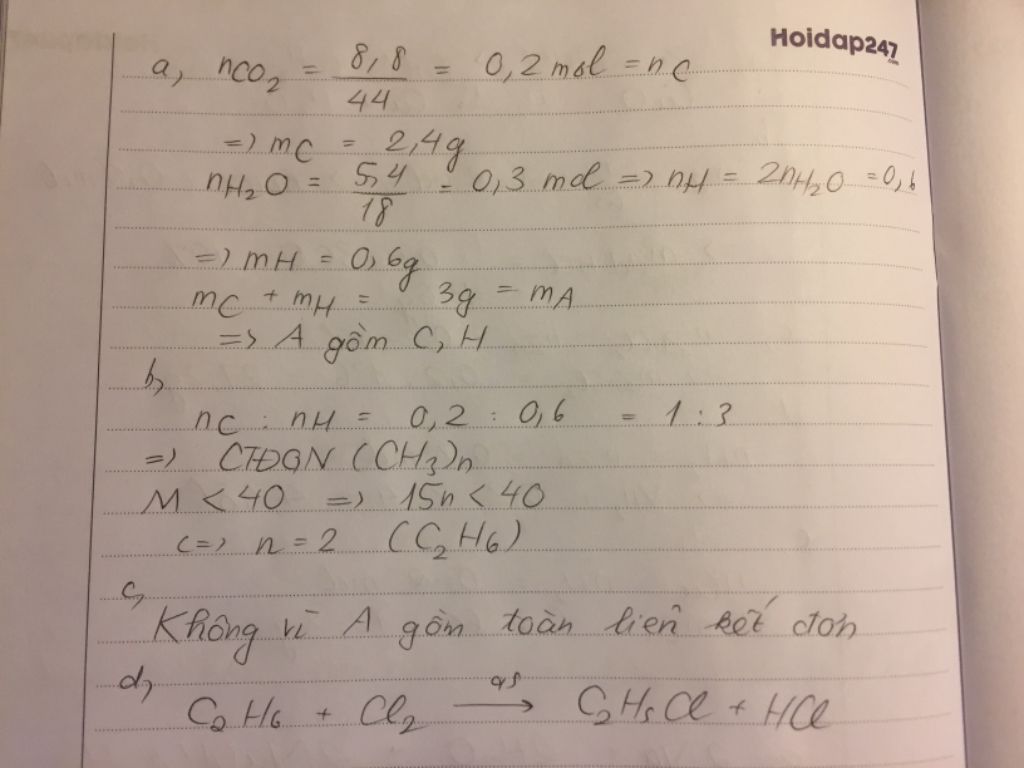 Hoidap247
.com
a, nCO₂ = 8,8/44 = 0,2 mol = nC
=> mC = 2,4g
nH₂O = 5,4/18 = 0,3 mol => nH = 2nH₂O = 0,6
=> mH = 0,6g
mC + mH = 3g = mA
=> A gồm C, H
b,
nC : nH = 0,2 : 0,6 = 1 : 3
=> CTĐGN (CH₃)n
M < 40 => 15n < 40
<=> n = 2 (C₂H₆)
c,
Không vì A gồm toàn liên kết đơn
d,
C₂H₆ + Cl₂ —as→ C₂H₅Cl + HCl